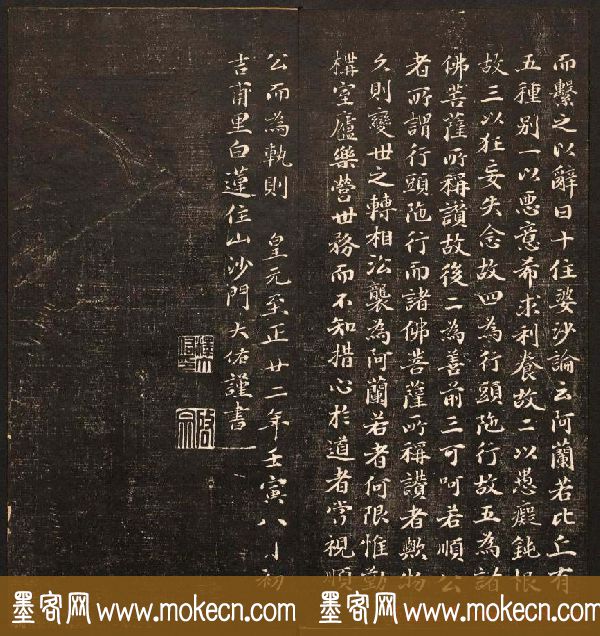 而繫之以辭曰十住婆沙論云阿蘭若比丘有
五種别一以悪意希求利養故二以愚癡鈍根
故三以狂妄失念故四為行頭陁行故五為諸
佛菩薩所稱讃故後二為善前三可呵若順公
者所謂行頭陁行而諸佛菩薩所稱讃者歟
久則變世之轉相沿襲為阿蘭若者何限惟勤
構室廬樂營世務而不知措心於道者甞視順
公而為軌則 皇元至正廿二年壬寅八月初
吉甫里白蓮住山沙門大佑謹書
墨客网 www.mokecn.com 墨客网 www.mokecn.com